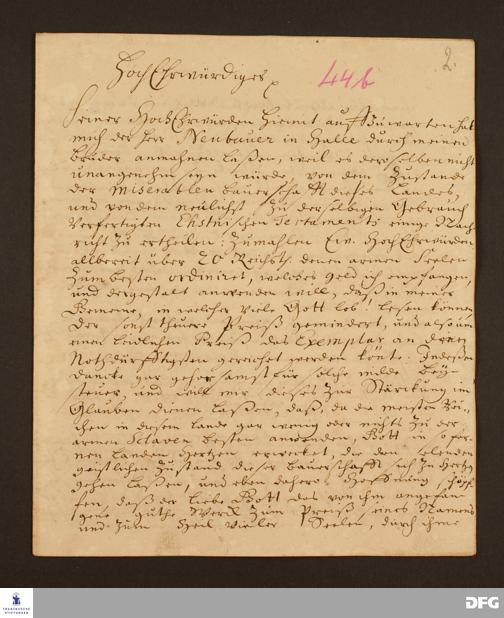 2.
HochEhrwürdiger
44b
Seiner HochEhrwürden hiemit auffzuwarten hat
mich der Herr Neubauer in Halle durch meinen
bruder anmahnen laßen, weil es derselben nicht
unangenehm seyn würde, von dem Zustande
der miserablen baurschafft dieses Landes,
und von dem neulichst zu derselbigen Gebrauch
verfertigten Ehstnischen Testamenti einige Nach
richt zu ertheilen: Zumahlen Ew. HochEhrwürden
allbereit über 20 Reichsth. denen armen Seelen
zum besten ordiniret, welches geld ich empfangen,
und dergestalt anwenden will, daß in meiner
Gemeine, in welcher viele Gott lob! lesen können
der sonst theure Preiß gemindert, und also um
einen leidlichen Preiß das Exemplar an denen
Nothdürfftigsten gereichet werden könte. Indeßen
dancke gar gehorsamst für solche milde bey-
steuer, und will mir dieses zur Stärckung im
Glauben dienen laßen, daß, da die meisten
in diesem Lande gar wenig oder nichts zu der
armen Sclaven besten anwenden, Gott in so fer-
nen Landen Hertzen erwecket, die den elenden
geistlichen Zustand dieser baurschafft sich zu Hertzen
gehen laßen, und eben dahero Hoffnung
daß der liebe Gott das von ihm angefan
gene guthe Werck zum Preiß seines Namens
und zum Heil vieler Seelen, durch ihme
FRANCKESCHE STIFTUNGEN
DFG